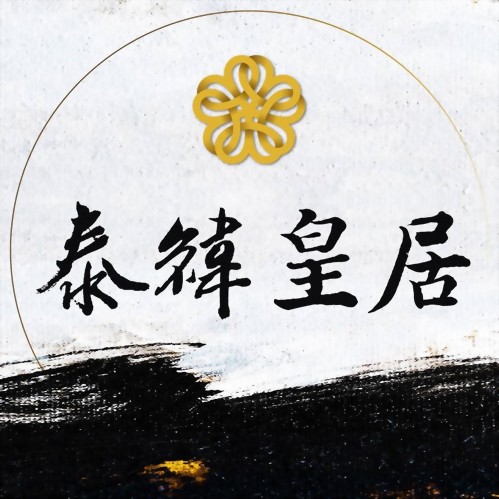 泰緯皇居